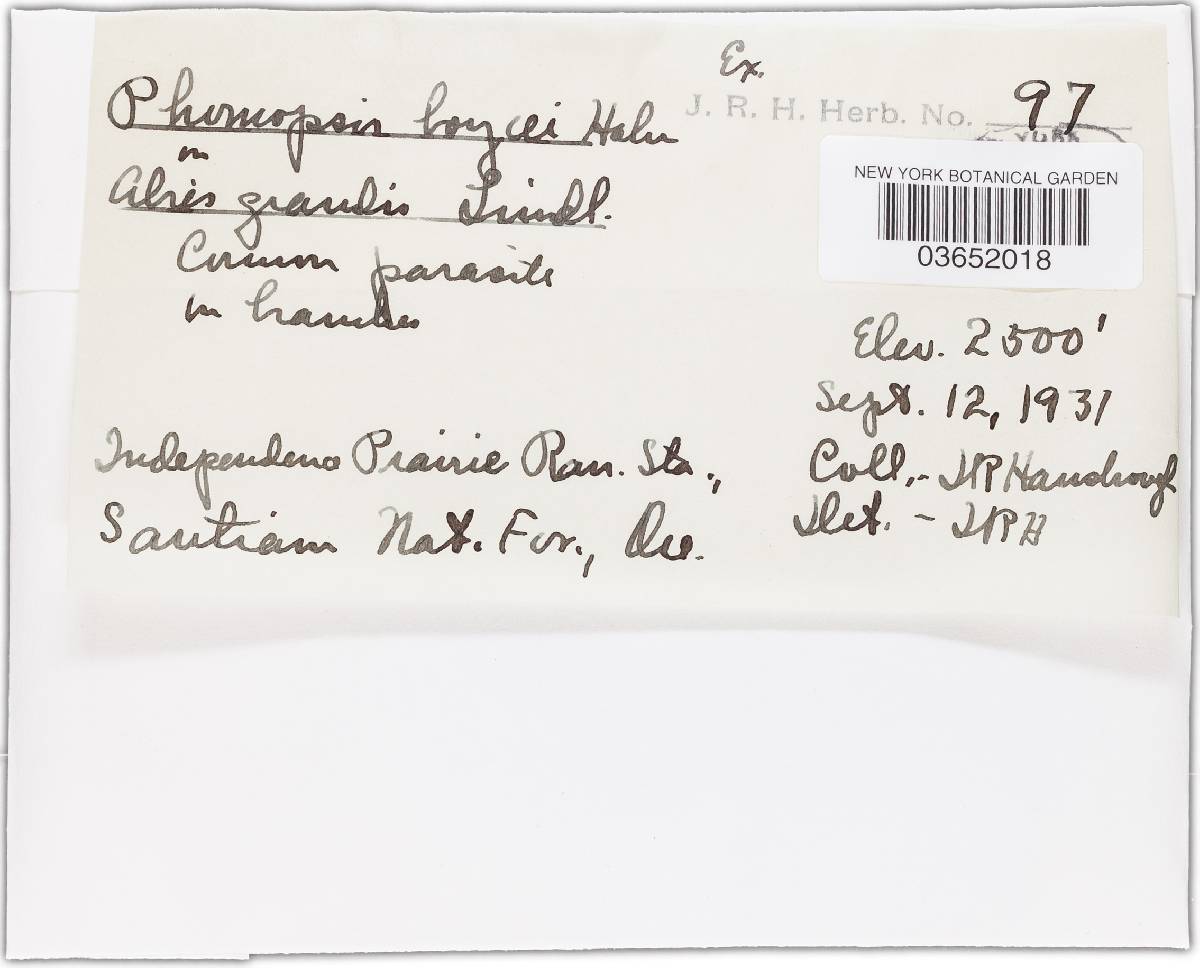 Ex.
J. R. H. Herb. No. 97
Phomopsis boycei Hahn
on
Abies grandis Lindl.
Common parasite
on branches
NEW YORK BOTANICAL GARDEN
03652018
Elev. 2500'
Sept. 12, 1931
Independence Prairie Ran. Sta.,
Santiam Nat. For., Ore.
Coll.- JRHansbrough
Det. - JRH